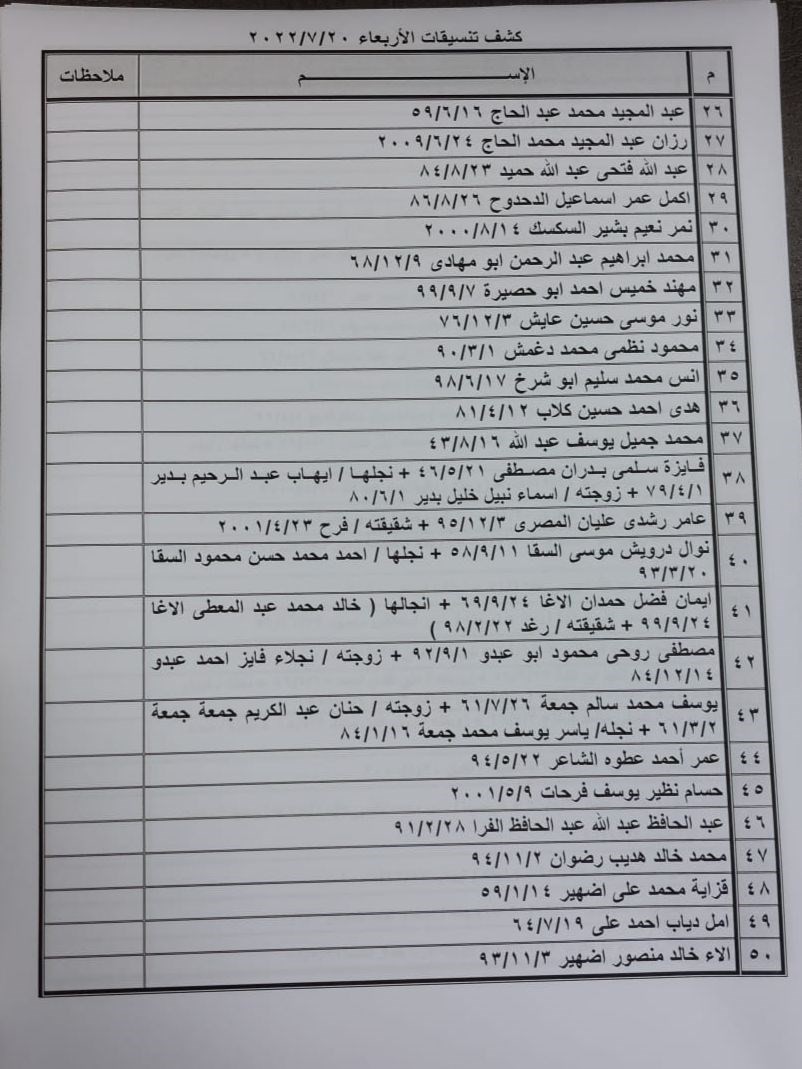 كشف تنسيقات الأربعاء ٢٠٢٢/٧/٢٠
م الإســـــم ملاحظات
٢٦ عبد المجيد محمد عبد الحاج ٥٩/٦/١٦
٢٧ رزان عبد المجيد محمد الحاج ٢٠٠٩/٦/٢٤
٢٨ عبد الله فتحى عبد الله حميد ٨٤/٨/٢٣
٢٩ اكمل عمر اسماعيل الدحدوح ٨٦/٨/٢٦
٣٠ نمر نعيم بشير السكسك ٢٠٠٠/٨/١٤
٣١ محمد ابراهيم عبد الرحمن ابو مهادى ٦٨/١٢/٩
٣٢ مهند خميس احمد ابو حصيرة ٩٩/٩/٧
٣٣ نور موسى حسين عايش ٧٦/١٢/٣
٣٤ محمود نظمى محمد دغمش ٩٠/٣/١
٣٥ انس محمد سليم ابو شرخ ٩٨/٦/١٧
٣٦ هدى احمد حسين كلاب ٨١/٤/١٢
٣٧ محمد جميل يوسف عبد الله ٤٣/٨/١٦
٣٨ فايزة سلمى بدران مصطفى ٤٦/٥/٢١ + نجلها / ايهاب عبد الرحيم بدير
٧٩/٤/١ + زوجته / اسماء نبيل خليل بدير ٨٠/٦/١
٣٩ عامر رشدى عليان المصرى ٩٥/١٢/٣ + شقيقته / فرح ٢٠٠١/٤/٢٣
٤٠ نوال درويش موسى السقا ٥٨/٩/١١ + نجلها / احمد محمد حسن محمود السقا
٩٣/٣/٢٠
٤١ ايمان فضل حمدان الاغا ٦٩/٩/٢٤ + انجالها ( خالد محمد عبد المعطى الاغا
٩٩/٩/٢٤ + شقيقته / رغد ٩٨/٢/٢٢ )
٤٢ مصطفى روحى محمود ابو عبدو ٩٢/٩/١ + زوجته / نجلاء فايز احمد عبدو
٨٤/١٢/١٤
٤٣ يوسف محمد سالم جمعة ٦١/٧/٢٦ + زوجته / حنان عبد الكريم جمعة جمعة
٦١/٣/٢ + نجله/ ياسر يوسف محمد جمعة ٨٤/١/١٦
٤٤ عمر أحمد عطوه الشاعر ٩٤/٥/٢٢
٤٥ حسام نظير يوسف فرحات ٢٠٠١/٥/٩
٤٦ عبد الحافظ عبد الله عبد الحافظ الفرا ٩١/٢/٢٨
٤٧ محمد خالد هديب رضوان ٩٤/١١/٢
٤٨ قزاية محمد على اضهير ٥٩/١/١٤
٤٩ امل دياب احمد على ٦٤/٧/١٩
٥٠ الاء خالد منصور اضهير ٩٣/١١/٣